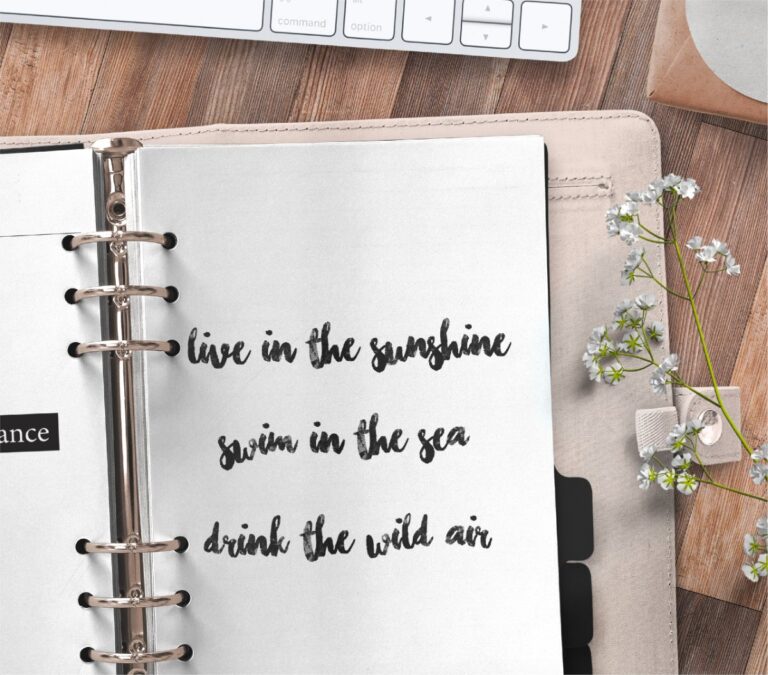 command
option
live in the sunshine
swim in the sea
ance
drink the wild air